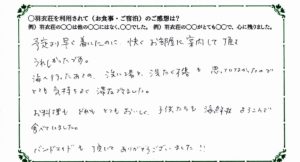 ◯羽衣荘を利用されて（お食事・ご宿泊）のご感想は？
例）羽衣荘の◯◯は他の◯◯にはなく、◯◯でした。　例）羽衣荘の◯◯がとても◯◯で、心に残りました。
予定より早く着いたのに 快くお部屋に案内して頂き
うれしかったです。
海へ行ったあとの、洗い場や、洗たく機
とても気持ちよく滞在できました。
お料理も どれも とても おいしく、子供たちも 海鮮を よろこんで
食べていました。
バンドエイドも 頂いて ありがとうございました!!